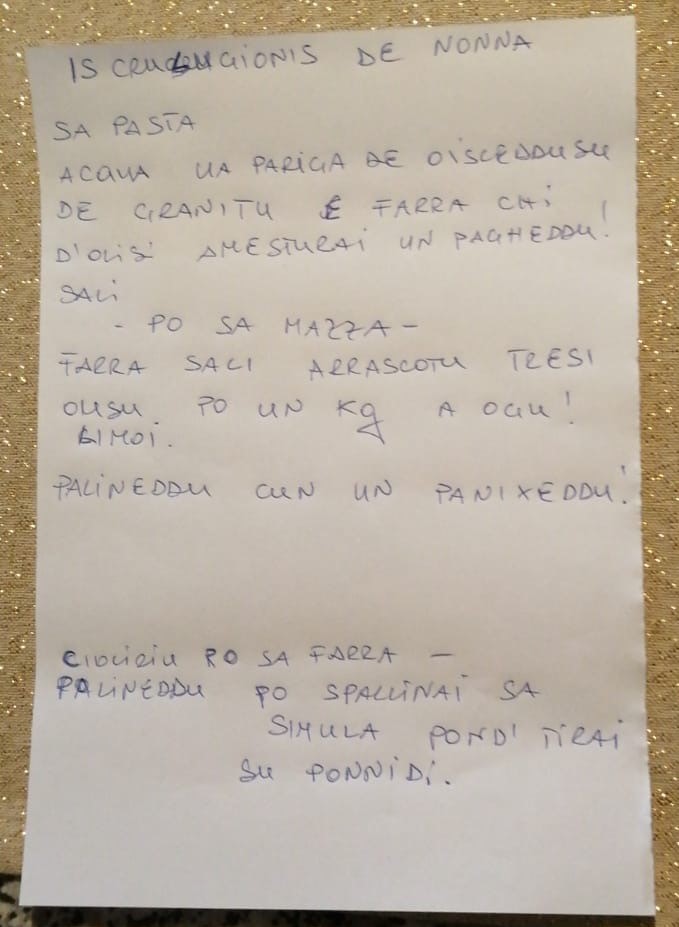 IS CRUGUGIONIS DE NONNA
SA PASTA
ACQUA UA PARIGA DE OISCEDDUSU
DE GRANITU E FARRA CHI
D'OLISI AMESTURAI UN PAGHEDDU!
SALI
- PO SA MAZZA -
FARRA SACI ARRASCOTU TRESI
OUSU PO UN Kg A OGU!
BIMOI.
PALINEDDU CUN UN PANIXEDDU!
CIULIRIU PO SA FARRA -
PALINEDDU PO SPALLINAI SA
SIMULA POND' TIRAI
SU PONNIDI.